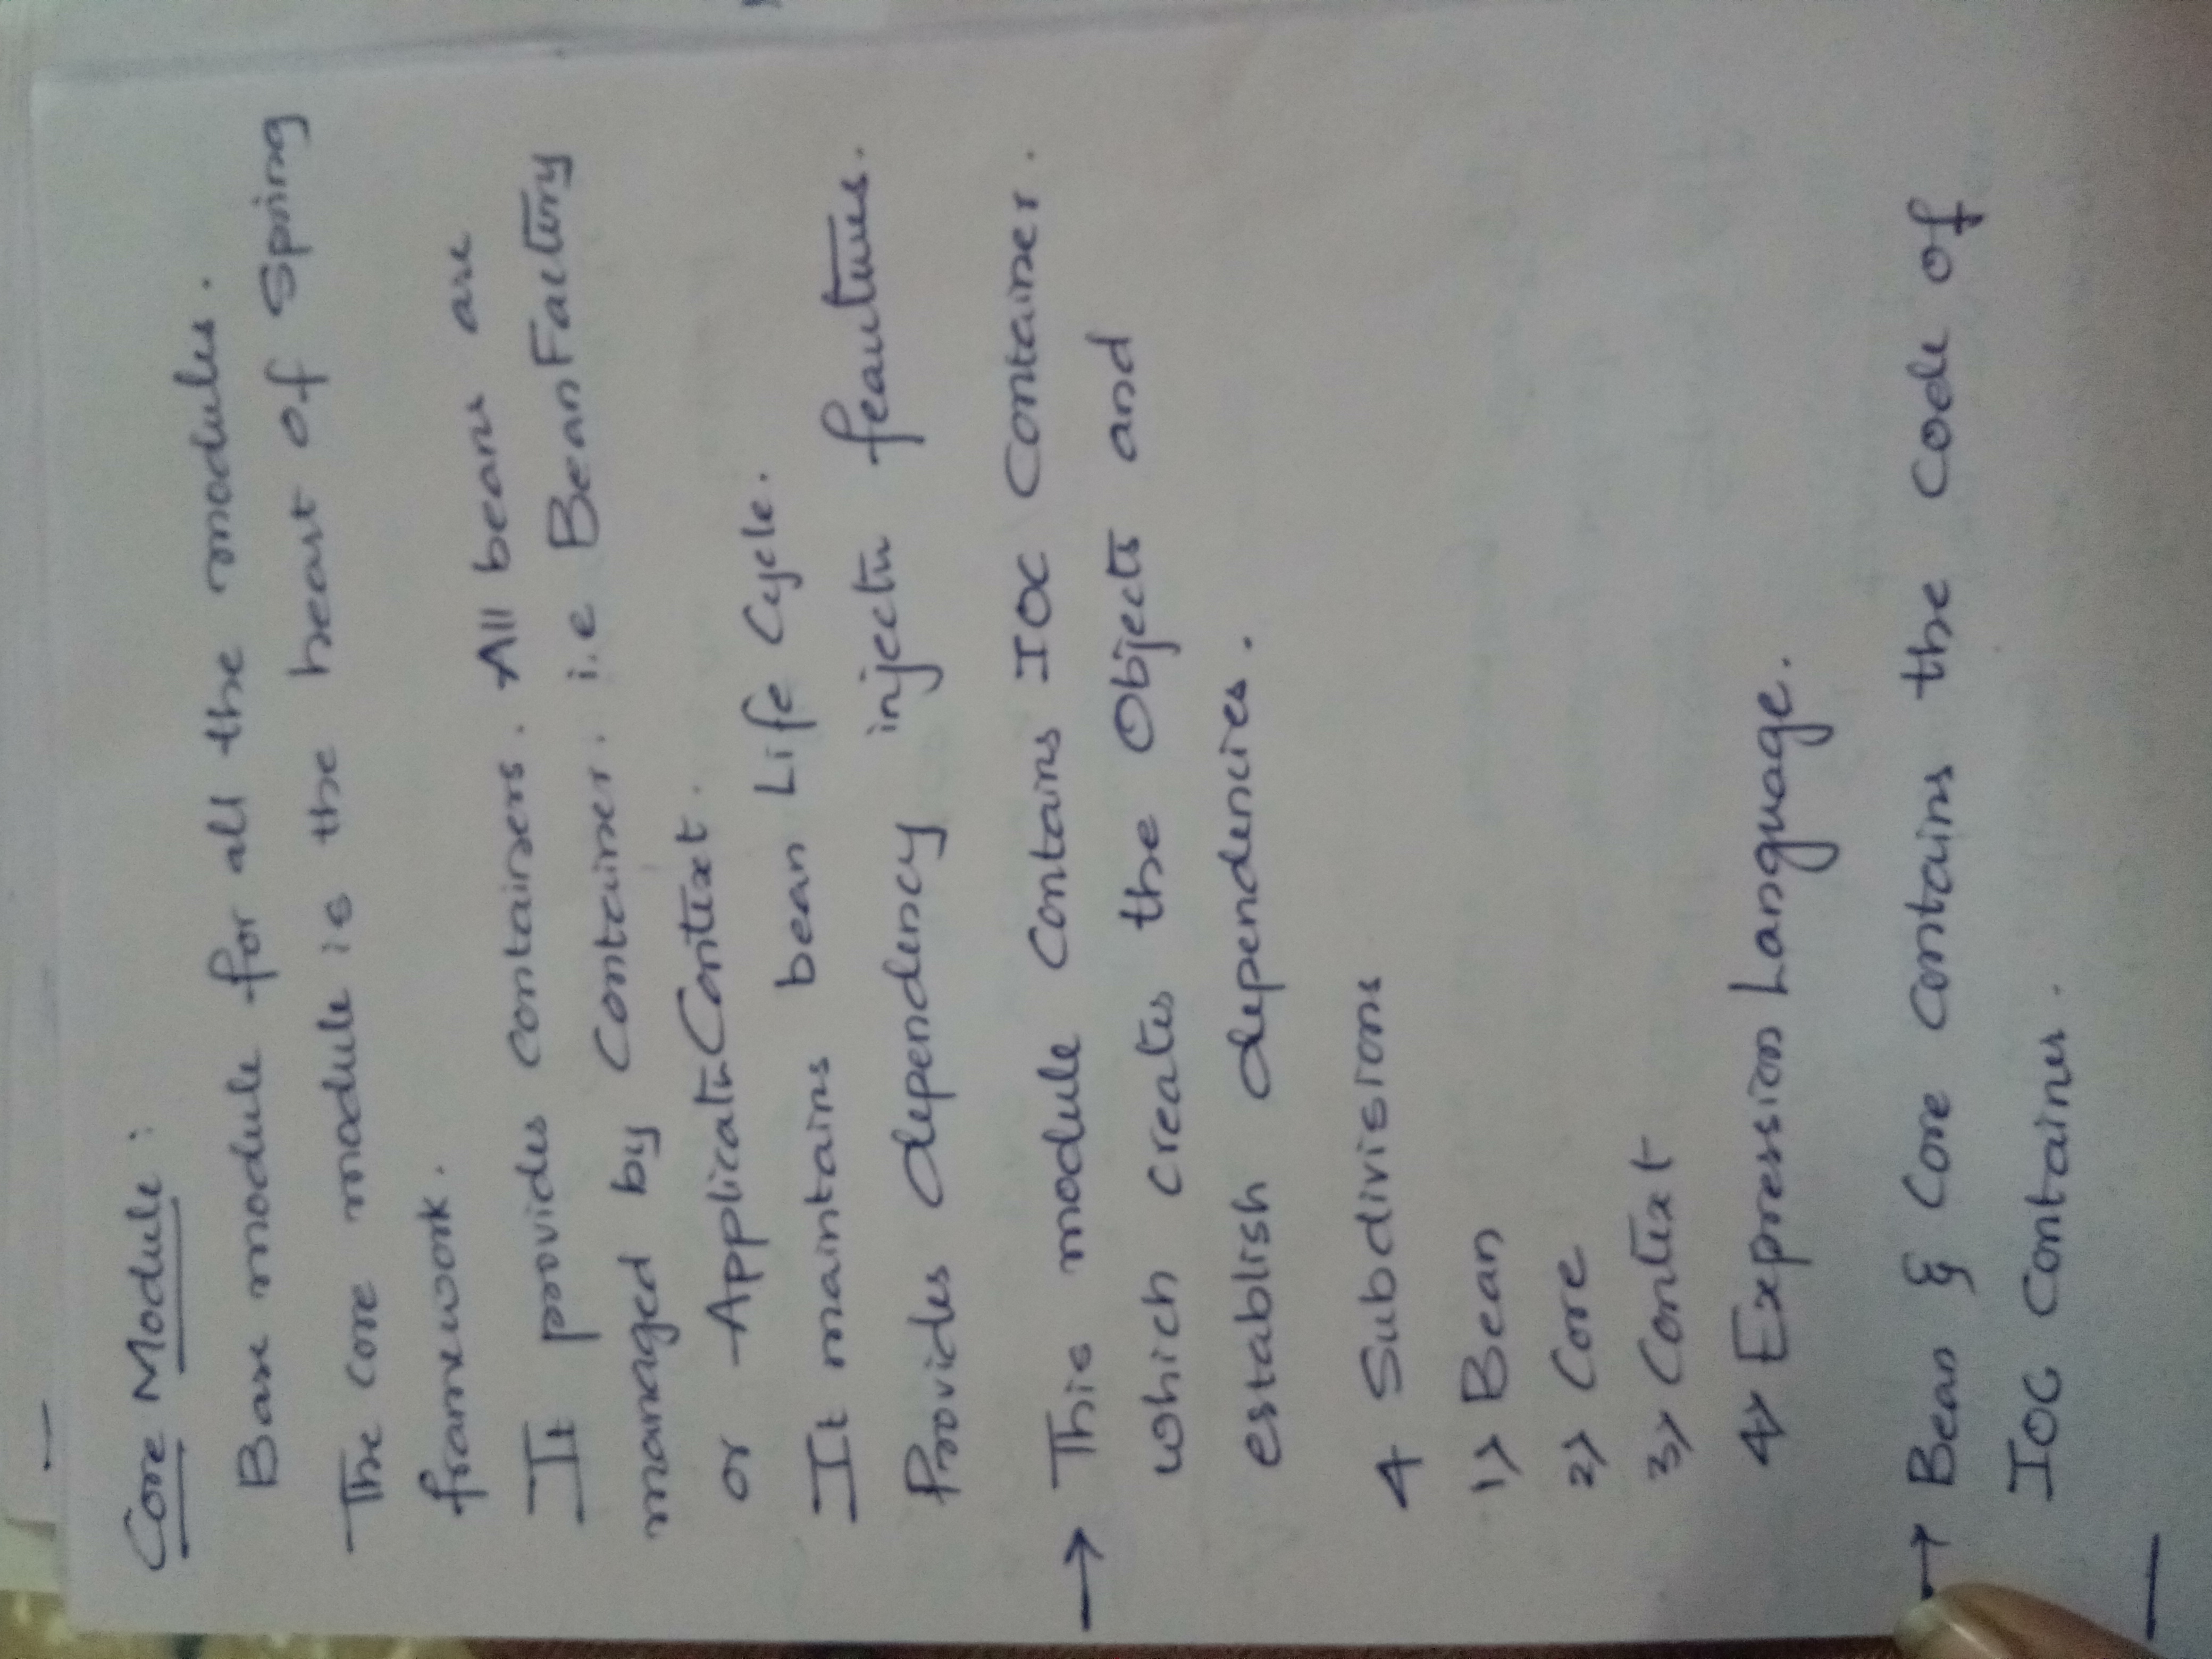 Core Module :
Base module for all the modules.
The core module is the heart of Spring
framework.
It provides containers. All beans are
managed by Container. i.e BeanFactory
or ApplicatnContext.
It maintains bean Life Cycle.
Provides dependency injectn feautures.
→ This module Contains IOC Container.
which creates the Objects and
establish dependencies.
4 Subdivisions
1) Bean
2) Core
3) Context
4) Expression Language.
→ Bean & Core Contains the Code of
IOC Container.